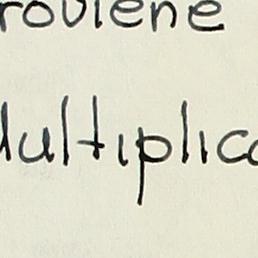 roviene
Multiplica